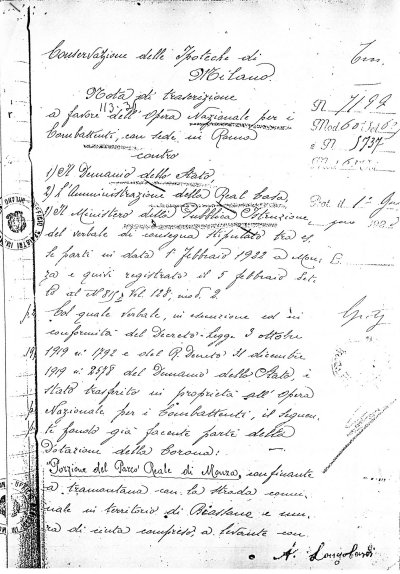 Conservazione delle Ipoteche di
Milano.
Nota di trascrizione
a favore dell'Opera Nazionale per i
Combattenti, con sede in Roma
contro
1) Il Demanio dello Stato,
2) l'Amministrazione della Real Casa,
3) Il Ministero della Pubblica Istruzione
del verbale di consegna stipulato tra es,
se parti in data 1 febbraio 1922 a Mon,
za e quivi registrato il 5 febbraio det,
to al N 815, Vol. 128, mod. 2.
Col quale verbale, in esecuzione ed in
conformità del Decreto-legge 3 ottobre
1919 n. 1792 e del R. Decreto 31 dicembre
1919 n. 2578 del Demanio dello Stato, è
stato trasferito in proprietà all'Opera
Nazionale per i Combattenti, il seguen,
te fondo già facente parte della
Dotazione della Corona:
"Porzione del Parco Reale di Monza, confinante
a tramontana con la strada comu,
nale in territorio di Biassono e mu,
ra di cinta compreso, a levante con
N. 7192
Mod. 60
e N. 5737
A. Longobardi